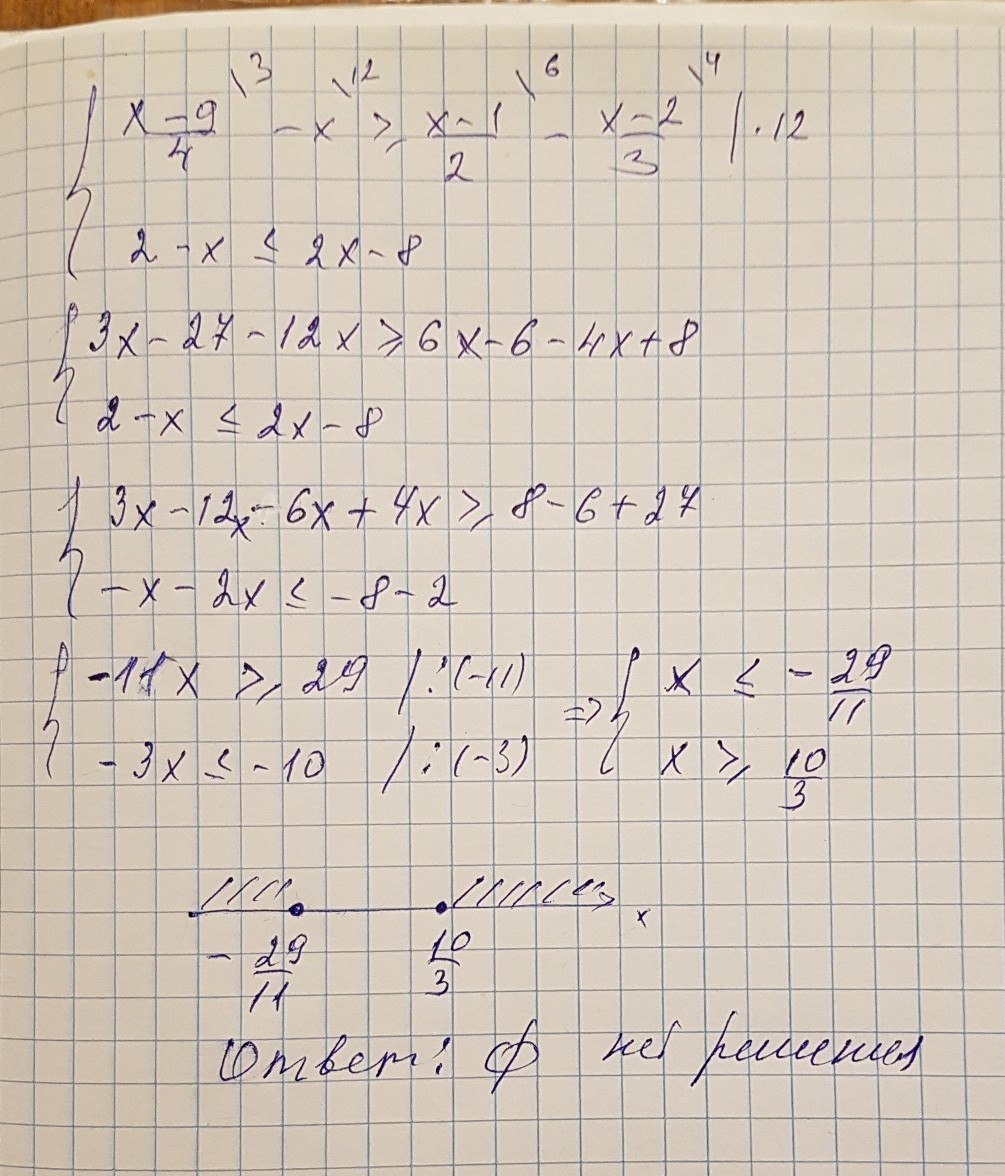 { (x-9)/4 \3 - x \12 ≥ (x-1)/2 \6 - (x-2)/3 \4 | ·12
2-x ≤ 2x-8
{ 3x-27-12x ≥ 6x-6-4x+8
2-x ≤ 2x-8
{ 3x-12x-6x+4x ≥ 8-6+27
-x-2x ≤ -8-2
{ -11x ≥ 29 | :(-11) => { x ≤ -29/11
-3x ≤ -10 | :(-3) x ≥ 10/3
x
-29/11 10/3
Ответ: ∅ нет решения